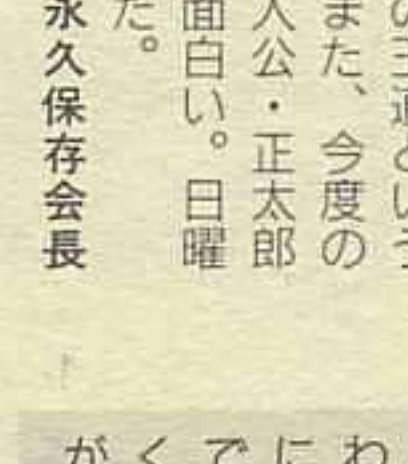 の王道という
また、今度の
人公・正太郎
面白い。日曜
た。
永久保存会長
わ
に
で
く
が